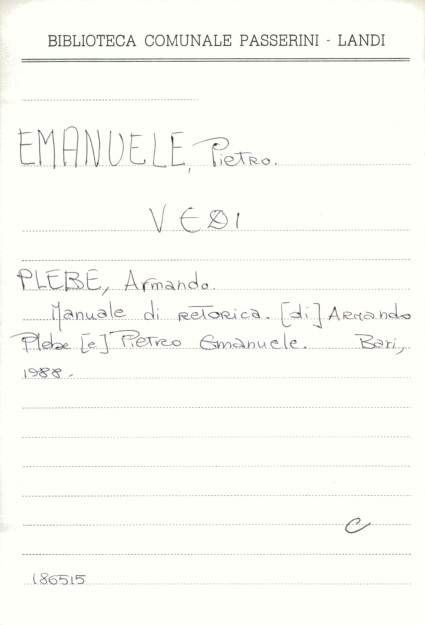 BIBLIOTECA COMUNALE PASSERINI - LANDI
EMANUELE, Pietro.
VEDI
PLEBE, Armando.
Manuale di retorica. [di] Armando
Plebe [e] Pietro Emanuele. Bari,
1988.
C
186515